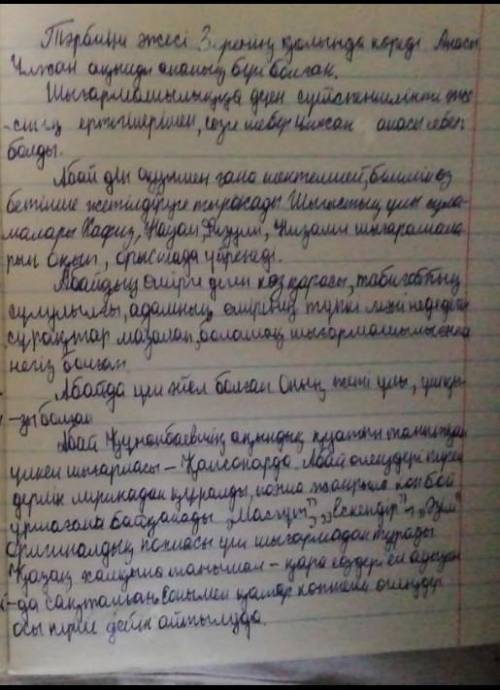 Тәрбиені әжесі Зеренің қолында көреді. Анасы
Ұлжан ақылды ананың бірі болған.
Шығармашылыққа деген сүйіспеншілікті әже
-сінің ертегілерімен, сөзге шебер Ұлжан анасы себеп
болды.
Абай діни оқумен ғана шектелмей, білімін өз
бетінше жетілдіруге тырысады. Шығыстың ұлы ғұла-
малары Хафиз, Науаи, Физули, Низами шығармала
рын оқып, орысшада үйренеді.
Абайдың өмірге деген көзқарасы, табиғаттың
сұлулығы, адамның өмірінің түпкі мәні неде деген
сұрақтар мазалап, болашақ шығармашылығына
негіз болған.
Абайда үш әйел болған. Оның жеті ұлы, үш қы
-зы болған.
Абай Құнанбаевтің ақындық қуатын танытқан
үлкен шығармасы – Қалсопарда. Абай өлеңдері түрлі
дерлік лирикадан құралды, поэма жанрына көп бой
ұрмағаны байқалады. „Масғұт", „Ескендір",
Оригиналдық поэмасы үш шығармадан тұрады
Қазақ халқына танымал – қара сөздері ел аузын
-да сақталған. Сонымен қатар көптеген өлеңдер
осы күнге дейін айтылуда.